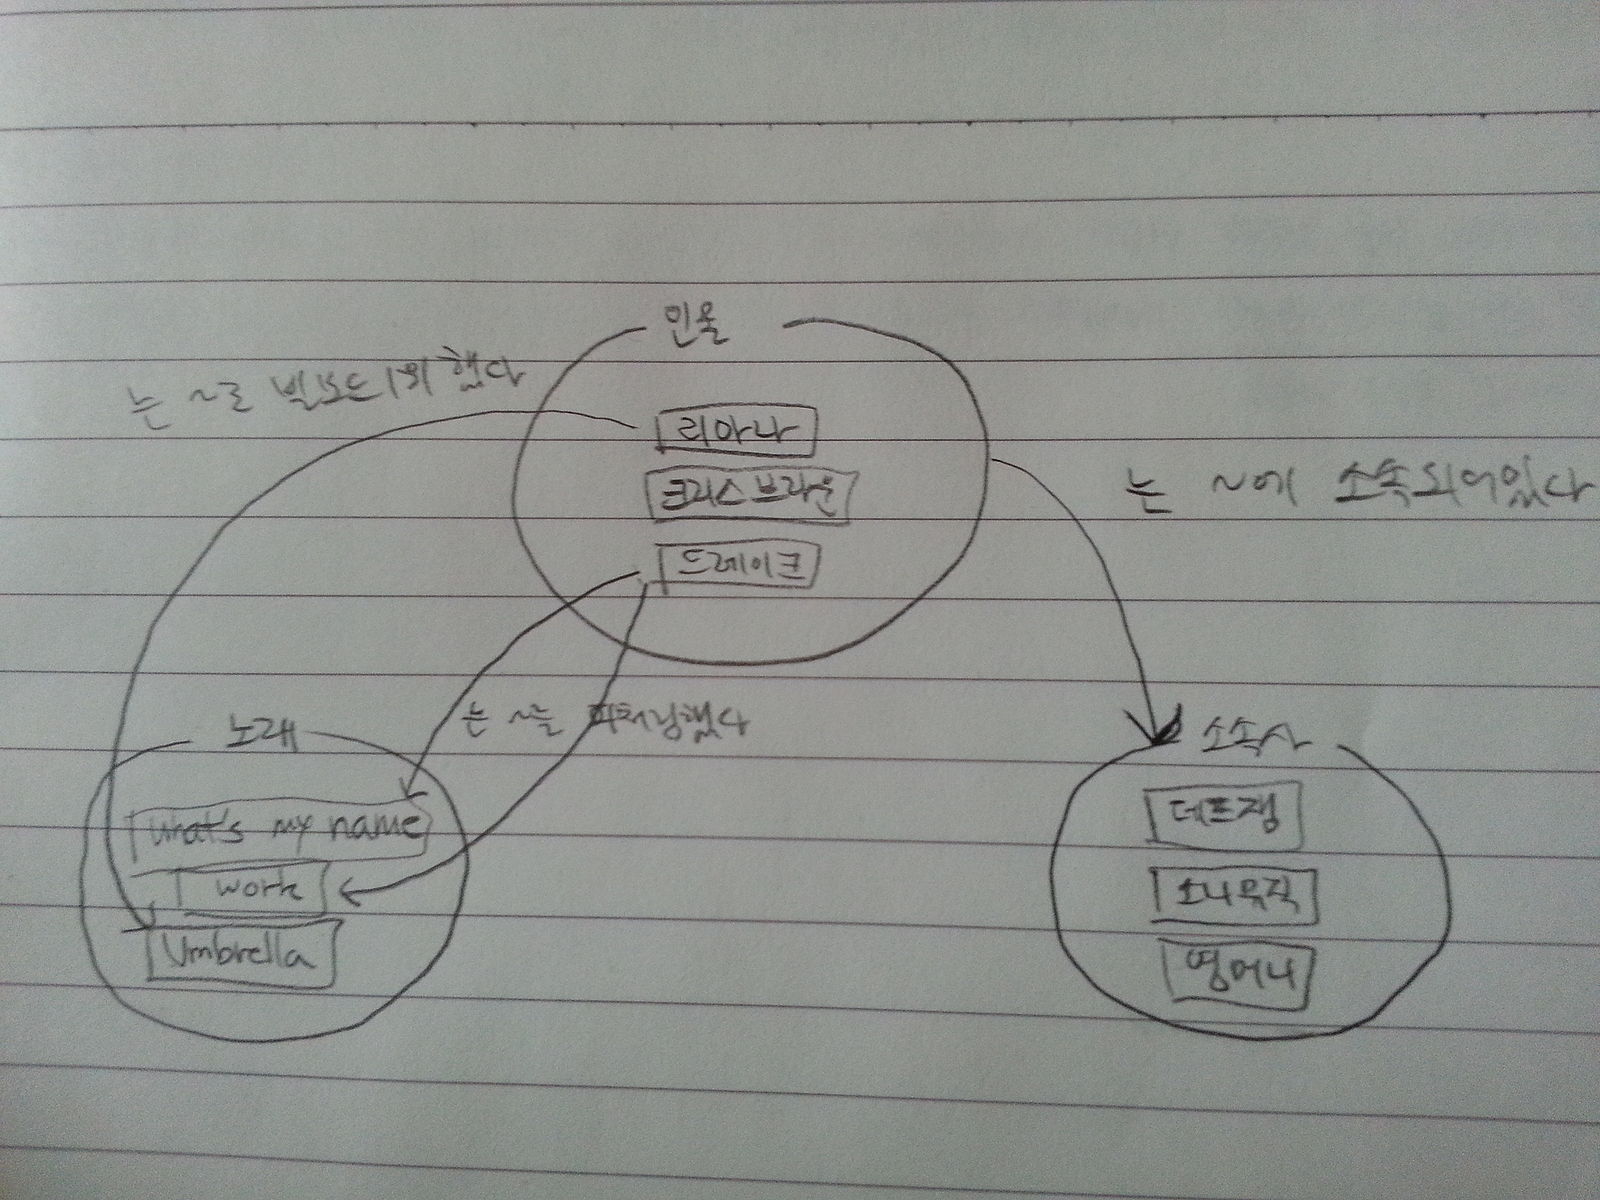 인물
는 ~로 빌보드1위 했다
리아나
크리스브라운
드레이크
는 ~에 소속되어있다
는 ~를 피처링했다
노래
what's my name
work
Umbrella
소속사
데프잼
소니뮤직
영머니